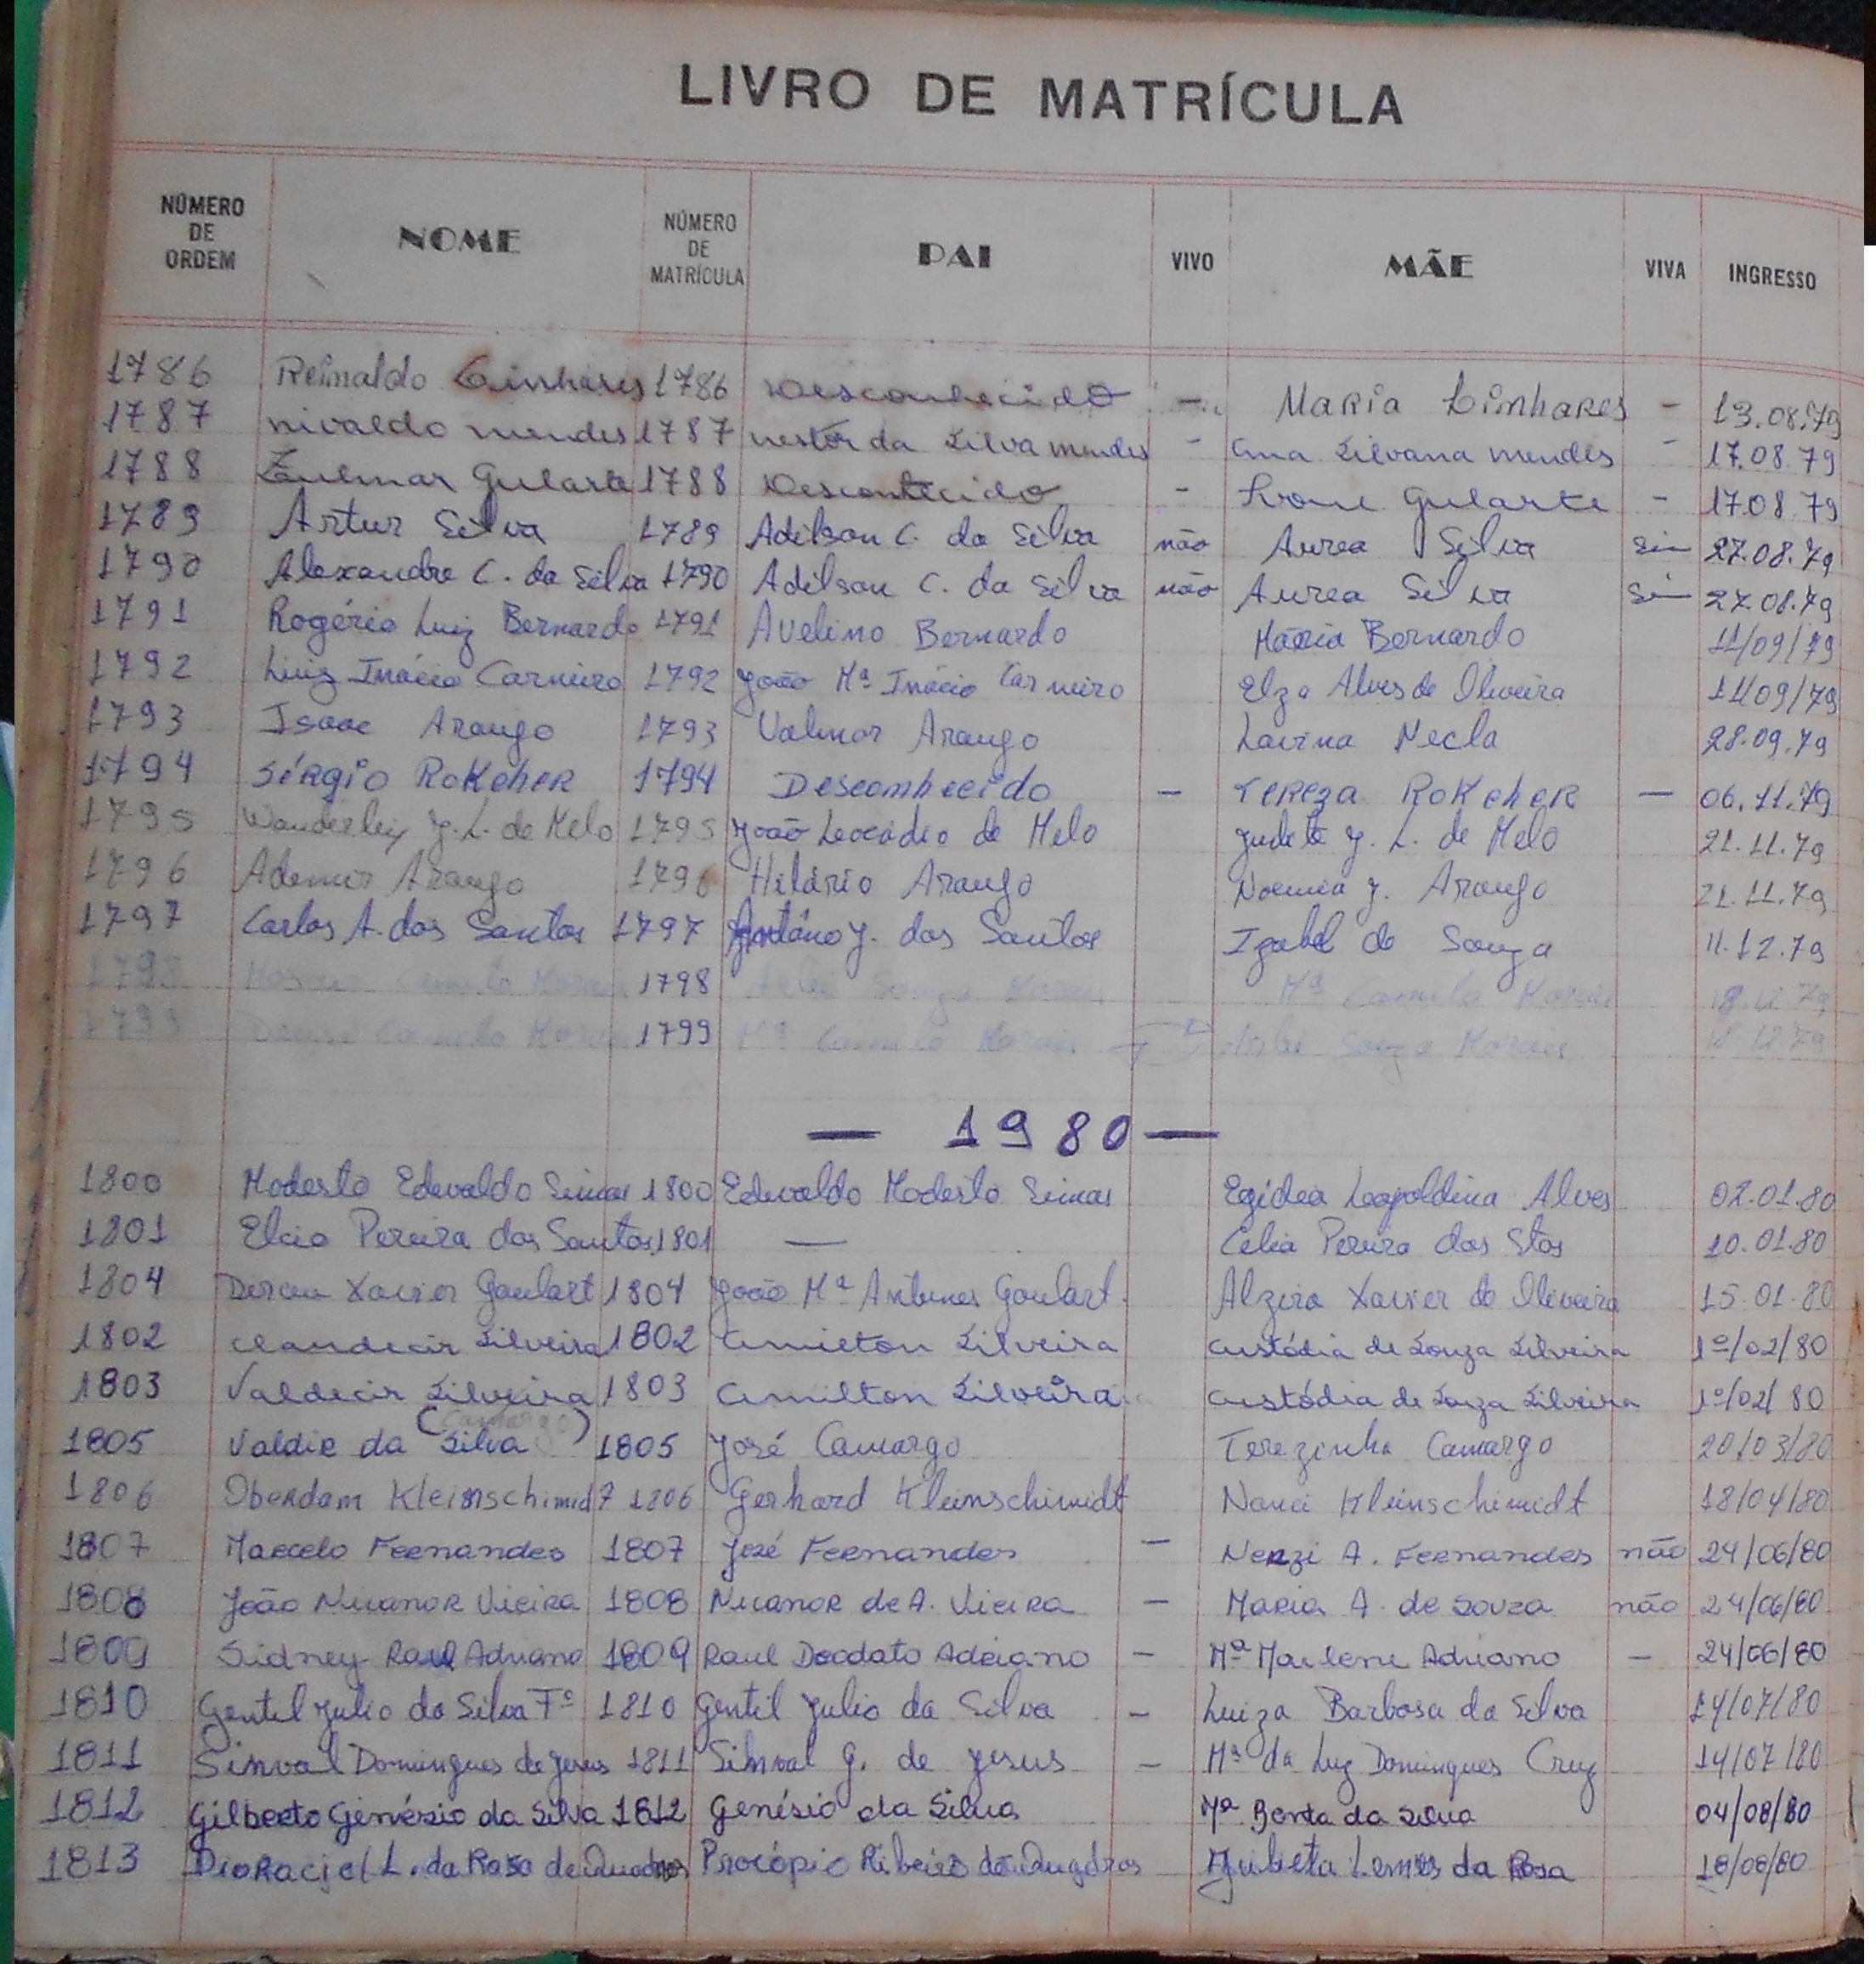 LIVRO DE MATRÍCULA
NÚMERO DE ORDEM NOME NÚMERO DE MATRÍCULA PAI VIVO MÃE VIVA INGRESSO
1786 Reinaldo Linhares 1786 Desconhecido - Maria Linhares - 13.08.79
1787 nivaldo mendes 1787 nestor da Silva mendes - Ana Silvana mendes - 17.08.79
1788 Zulmar Gularte 1788 Desconhecido - Ivone Gularte - 17.08.79
1789 Artur Silva 1789 Adilson C. da Silva não Aurea Silva sim 27.08.79
1790 Alexandre C. da Silva 1790 Adilson C. da Silva não Aurea Silva sim 27.08.79
1791 Rogério Luiz Bernardo 1791 Avelino Bernardo Maria Bernardo 11/09/79
1792 Luiz Inácio Carneiro 1792 João Mª Inácio Carneiro Elza Alves de Oliveira 11/09/79
1793 Isaac Araujo 1793 Valmor Araujo Lavina Necla 28.09.79
1794 Sérgio Rokeher 1794 Desconhecido - Tereza Rokeher - 06.11.79
1795 Wanderley J. L. de Melo 1795 João Leocádio de Melo Judete J. L. de Melo 21.11.79
1796 Ademir Araujo 1796 Hilário Araujo Noemia J. Araujo 21.11.79
1797 Carlos A. dos Santos 1797 Antônio J. dos Santos Izabel de Souza 11.12.79
1798 Camilo Morais 1798 Souza Morais Mª Camilo Morais 18.12.79
1799 Camilo Morais 1799 Mª Camilo Morais Souza Morais 18.12.79
— 1980 —
1800 Modesto Edevaldo Simas 1800 Edevaldo Modesto Simas Egidea Leopoldina Alves 02.01.80
1801 Elcio Pereira dos Santos 1801 — Celia Pereira dos Stos 10.01.80
1804 Xavier Goulart 1804 João Mª Antunes Goulart. Alzira Xavier de Oliveira 15.01.80
1802 Claudecir Silveira 1802 Amilton Silveira Custódia de Souza Silveira 1º/02/80
1803 Valdecir Silveira 1803 Amilton Silveira Custódia de Souza Silveira 1º/02/80
(Camargo)
1805 Valdir da Silva 1805 José Camargo Terezinha Camargo 20/03/80
1806 Oberdam Kleinschimidt 1806 Gerhard Kleinschimidt Nanci Kleinschimidt 18/04/80
1807 Marcelo Fernandes 1807 José Fernandes - Nerzi A. Fernandes não 24/06/80
1808 João Nicanor Vieira 1808 Nicanor de A. Vieira - Maria A. de Souza não 24/06/80
1809 Sidney Raul Adriano 1809 Raul Deodato Adriano - Mª Marlene Adriano - 24/06/80
1810 Gentil Julio da Silva Fº 1810 Gentil Julio da Silva - Luiza Barbosa da Silva 14/07/80
1811 Sinval Domingues de Jesus 1811 Sinval G. de Jesus - Mª da Luz Domingues Cruz 14/07/80
1812 Gilberto Genésio da Silva 1812 Genésio da Silva Mª Benta da Silva 04/08/80
1813 L. da Rosa de Quadros Procópio Ribeiro de Quadros Julieta Lemes da Rosa 18/08/80